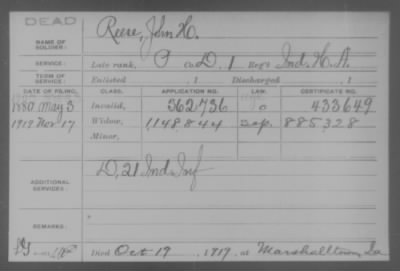 DEAD
NAME OF SOLDIER: Reese, John H.
SERVICE: Late rank, P Co. D, 1 Reg't Ind. H. A.
TERM OF SERVICE: Enlisted , 1 Discharged , 1
DATE OF FILING. CLASS. APPLICATION NO. LAW. CERTIFICATE NO.
1880 May 3 Invalid, 362736 433649
1919 Nov 17 Widow, 1,148,844 885,328
Minor,
ADDITIONAL SERVICES: D, 21 Ind. Inf
REMARKS:
Died Oct 19, 1919, at Marshalltown, Ia